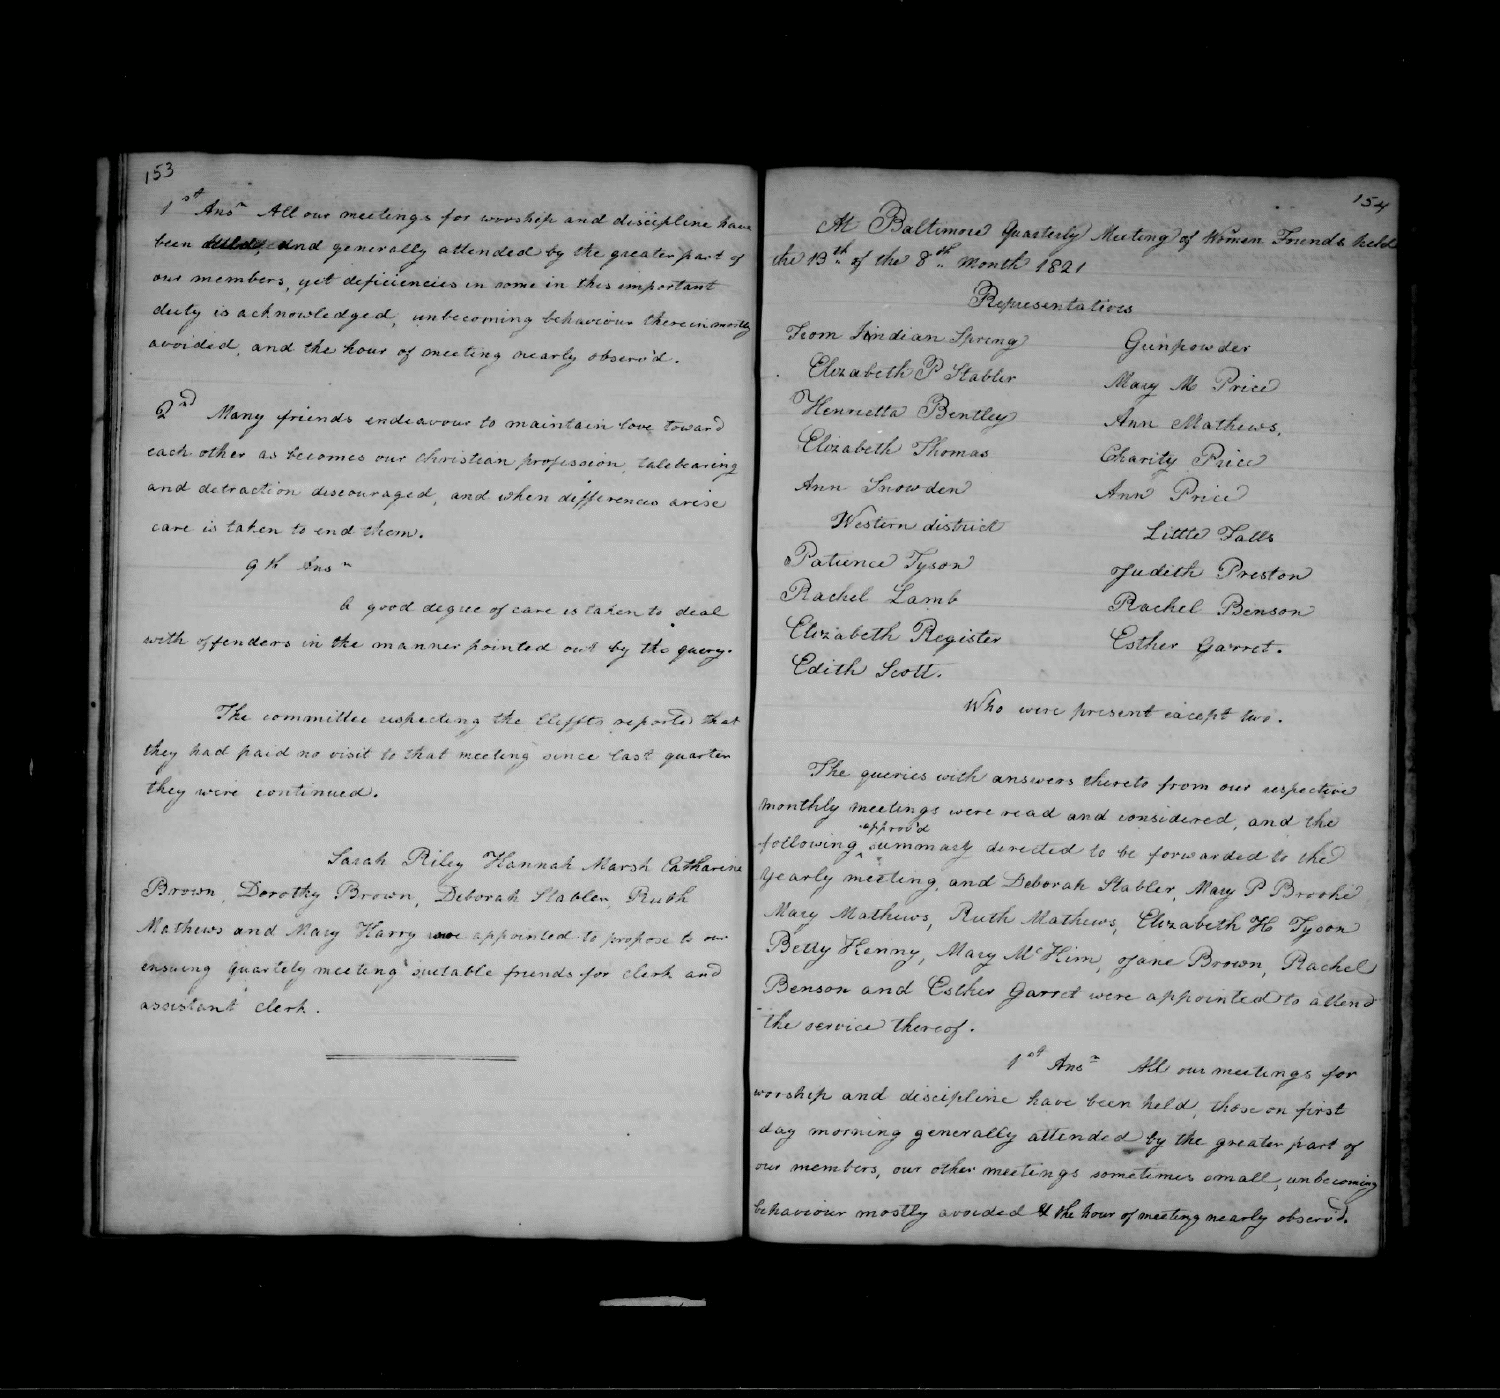 153
1st Ansr All our meetings for worship and discipline have
been held, and generally attended by the greater part of
our members, yet deficiencies in some in this important
duty is acknowledged, unbecoming behaviour therein mostly
avoided, and the hour of meeting nearly observ'd.
2nd Many friends endeavour to maintain love toward
each other as becomes our Christian profession, talebearing
and detraction discouraged, and when differences arise
care is taken to end them.
9th Ansr
A good degree of care is taken to deal
with offenders in the manner pointed out by the query.
The committee respecting the Clifts reported that
they had paid no visit to that meeting since last quarter
they were continued.
Sarah Riley Hannah Marsh Catharine
Brown, Dorothy Brown, Deborah Stabler, Ruth
Mathews and Mary Harry were appointed to propose to our
ensuing Quartely meeting suitable friends for clerk and
assistant clerk.
154
At Baltimore Quarterly Meeting of Women Friends held
the 13th of the 8th Month 1821
Representatives
From Indian Spring
Elizabeth P Stabler
Henrietta Bentley
Elizabeth Thomas
Ann Snowden
Western district
Patience Tyson
Rachel Lamb
Elizabeth Register
Edith Scott.
Gunpowder
Mary M Price
Ann Mathews,
Charity Price
Ann Price
Little Falls
Judith Preston
Rachel Benson
Esther Garret.
Who were present except two.
The queries with answers thereto from our respective
monthly meetings were read and considered, and the
approv'd
following ‸ summary directed to be forwarded to the
Yearly meeting, and Deborah Stabler, Mary P Brooke
Mary Mathews, Ruth Mathews, Elizabeth H Tyson
Betty Kenny, Mary McKim, Jane Brown, Rachel
Benson and Esther Garret were appointed to attend
the service thereof.
1st Ansr All our meetings for
worship and discipline have been held, those on first
day morning generally attended by the greater part of
our members, our other meetings sometimes small, unbecoming
behaviour mostly avoided & the hour of meeting nearly observ'd.